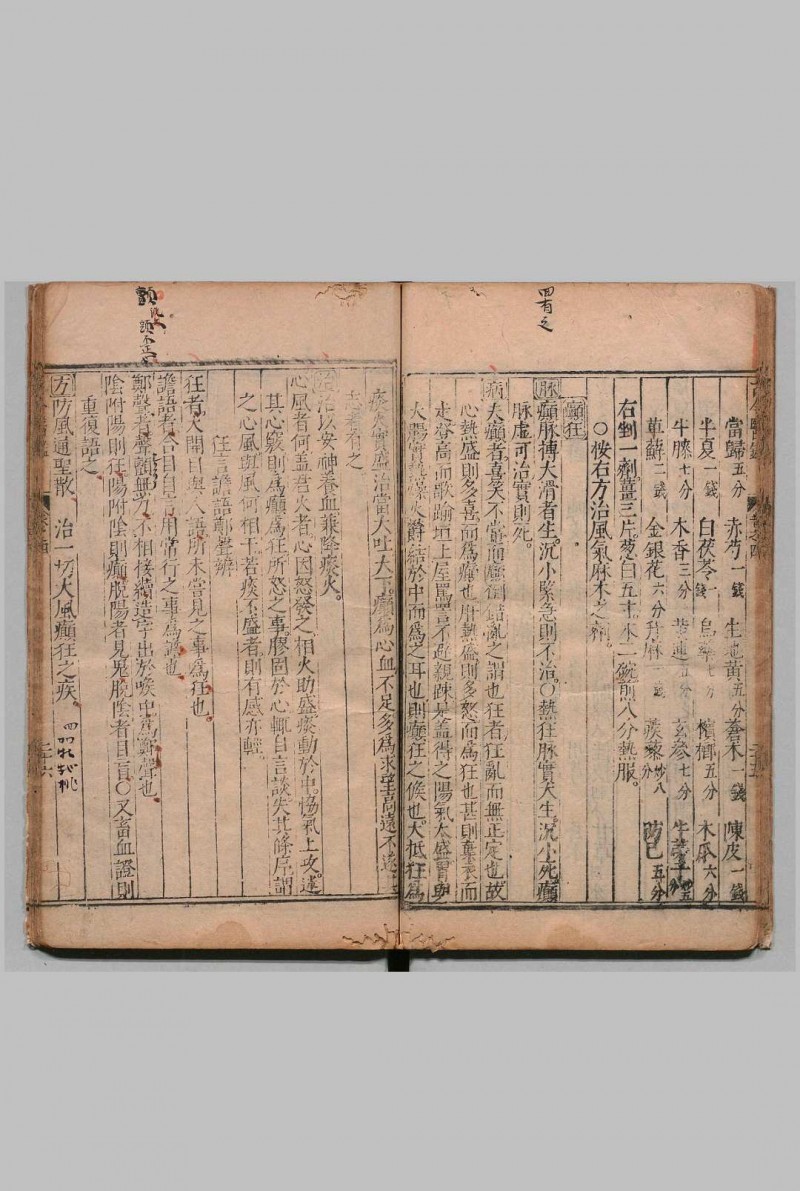 四有之
當歸五分 赤芍一錢 生地黃五分 蒼朮一錢 陳皮一錢
半夏一錢 白茯苓一錢 烏藥七分 檳榔五分 木瓜六分
牛膝七分 木香三分 黃連五分 玄參七分 牛蒡子
萆薢二錢 金銀花六分 升麻一錢 蒺藜炒八分 防己五分
右剉一劑薑三片葱白五寸水二碗煎八分熱服
○按右方治風氣麻木之劑
癲狂
脉癲脉搏大滑者生沉小緊急則不治○熱狂脉實大生沉小死癲
脉虛可治實則死
病夫癲者喜笑不常而顛倒錯亂之謂也狂者狂亂而無正定也故
心熱盛則多喜而為癲也肝熱盛則多怒而為狂也甚則棄衣而
走登高而歌踰垣上屋罵詈不避親踈是蓋得之陽氣太盛胃與
大腸實熱燥火鬱結於中而為之耳也則癲狂之候也大抵狂為
痰火實盛治當大吐大下癲為心血不足多為求望高遠不遂
志者有之
治治以安神養血兼降痰火
心風者何蓋君火者心因怒發之相火助盛痰動於中恊氣上攻迷
其心竅則為癲為狂所怒之事膠固於心輒自言談失其條序謂
之心風與風何相干若痰不盛者則有感亦輕
狂言譫語鄭聲辨
狂者大開目與人語所未嘗見之事為狂也
譫語者合目自言日用常行之事為譫也
鄭聲者聲顫無力不相接續造字出於喉中為鄭聲也
陰附陽則狂陽附陰則癲脫陽者見鬼脫陰者目盲○又畜血證則
重復語之
方防風通聖散 治一切大風癲狂之疾